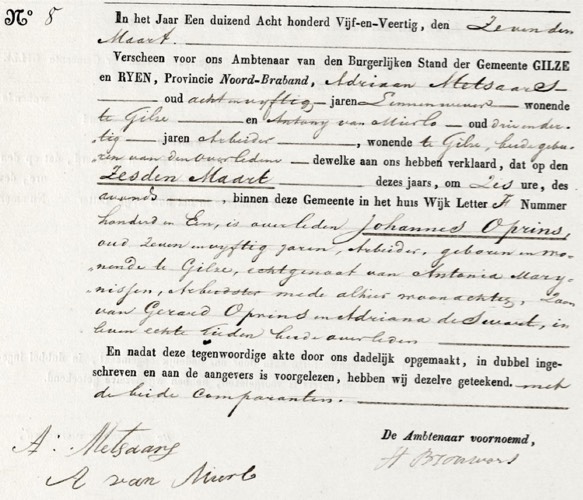 N° 8
In het Jaar Een duizend Acht honderd Vijf-en-Veertig, den Zevenden
Maart.
Verscheen voor ons Ambtenaar van den Burgerlijken Stand der Gemeente GILZE
en RYEN, Provincie Noord-Braband, Adriaan Metsaars
oud acht en vyftig jaren Linnenwever wonende
te Gilze en Antony van Mierlo oud drie en der-
tig jaren Arbeider, wonende te Gilze, beide gebu-
ren van den overledene dewelke aan ons hebben verklaard, dat op den
Zesden Maart dezes jaars, om Zes ure, des
avonds, binnen deze Gemeente in het huis Wijk Letter F Nummer
honderd en Een, is overleden Johannes Oprins,
oud Zeven en vyftig jaren, Arbeider, geboren en wo-
nende te Gilze, echtgenoot van Antonia Mary-
nissen, Arbeidster mede alhier woonachtig, Zoon
van Gerard Oprins en Adriana de Swart, in
leven echte lieden beide overleden
En nadat deze tegenwoordige akte door ons dadelijk opgemaakt, in dubbel inge-
schreven en aan de aangevers is voorgelezen, hebben wij dezelve geteekend. met
de beide Comparanten.
De Ambtenaar voornoemd,
A: Metsaars
A van Mierlo